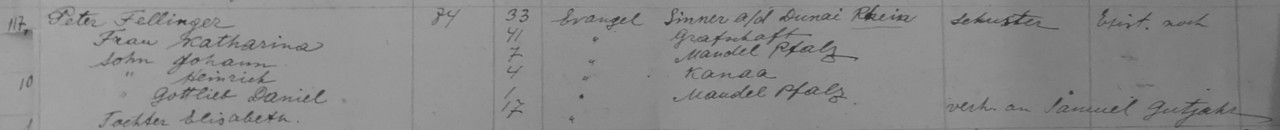 117. Peter Fellinger 84 33 Evangel Sinner a/d Dunai Rhein Schuster Exist. noch
Frau Katharina 41 " Grafschaft
Sohn Johann 7 " Mandel Pfalz
10 " Heinrich 4 " Kanaa
" Gottlieb Daniel 1 " Mandel Pfalz
Tochter Elisabeth. 17 " verh. an Samuel Gutjahr